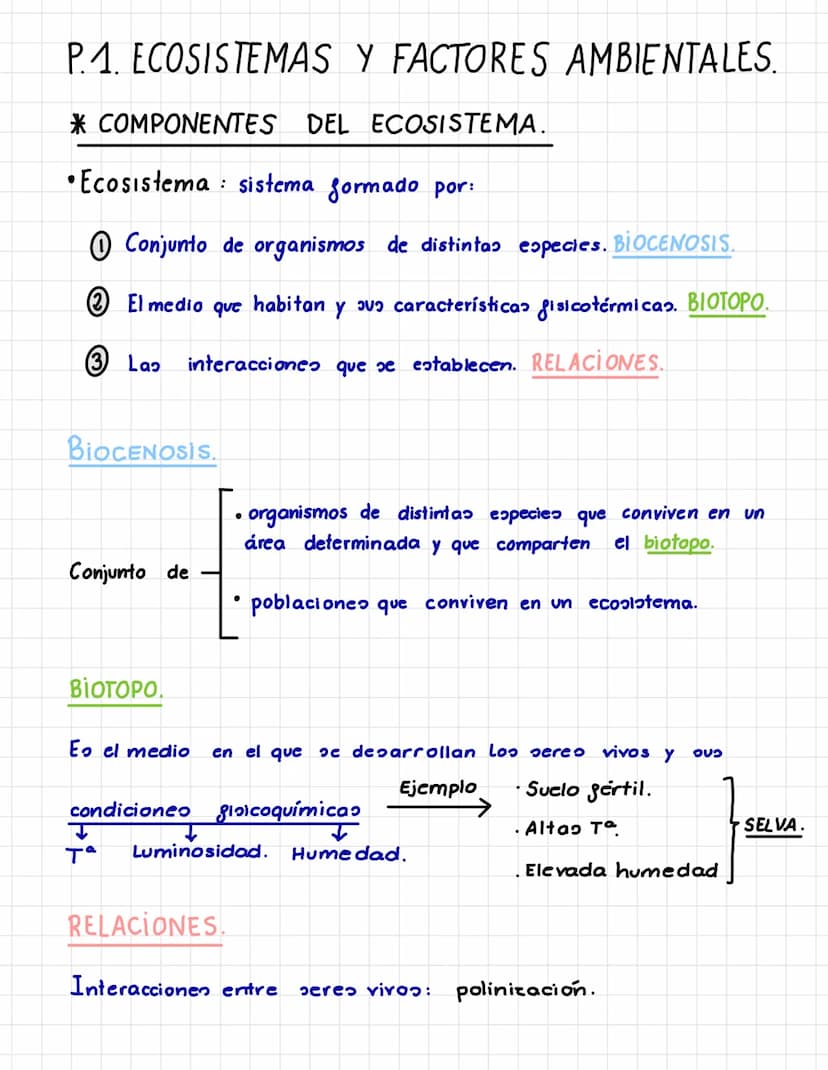 P.1. ECOSISTEMAS Y FACTORES AMBIENTALES.
* COMPONENTES DEL ECOSISTEMA.
• Ecosistema : sistema formado por:
① Conjunto de organismos de distintas especies. BIOCENOSIS.
② El medio que habitan y sus características fisicotérmicas. BIOTOPO.
③ Las interacciones que se establecen. RELACIONES.
BIOCENOSIS.
• organismos de distintas especies que conviven en un
área determinada y que comparten el biotopo.
Conjunto de
• poblaciones que conviven en un ecosistema.
BIOTOPO.
Es el medio en el que se desarrollan los seres vivos y sus
condiciones fisicoquímicas
Tª Luminosidad. Humedad.
Ejemplo
· Suelo fértil.
. Altas Tª.
. Elevada humedad
SELVA.
RELACIONES.
Interacciones entre seres vivos: polinización.